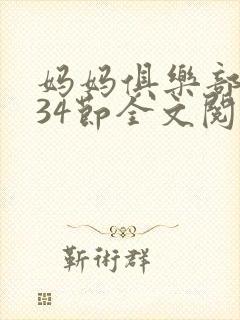 妈妈俱樂部
34節全文閱
靳術群